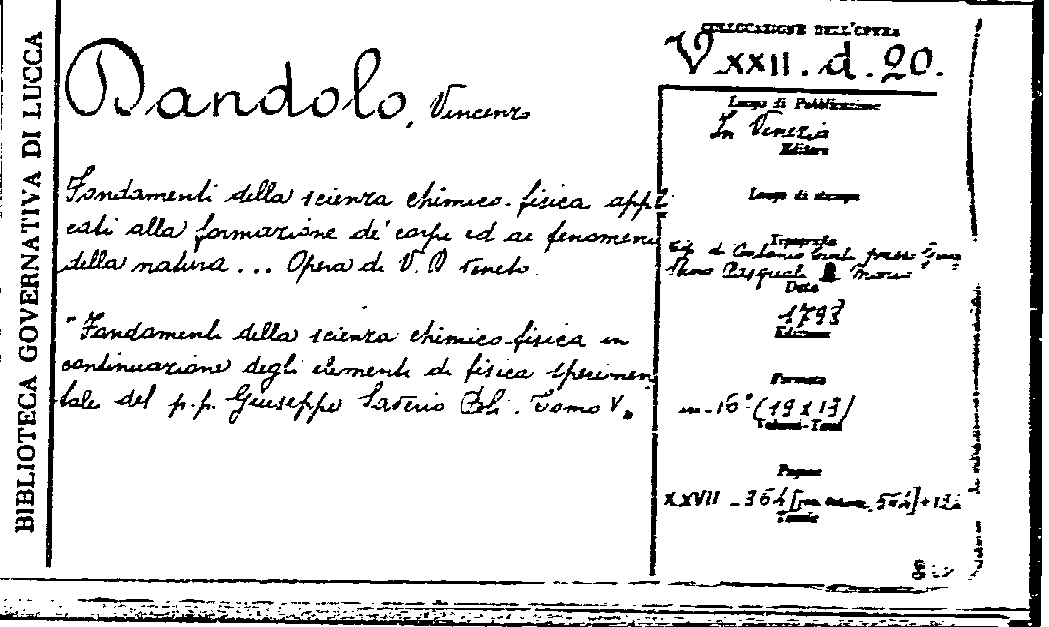 BIBLIOTECA GOVERNATIVA DI LUCCA
Dandolo, Vincenzo
Fondamenti della scienza chimico-fisica appli
cati alla formazione de' corpi ed ai fenomeni
della natura... Opera di V. D. Veneto.
"Fondamenti della scienza chimico-fisica in
continuazione degli elementi di fisica sperimen
tale del p.p. Giuseppe Saverio Poli. Tomo V„
COLLOCAZIONE DELL'OPERA
V. XXII. d. 20.
Luogo di Pubblicazione
In Venezia
Editore
Luogo di stampa
Tipografia
Data
1793
Edizione
Formato
in-16° (19 x 13)
Volumi-Tomi
Pagine
XXVII - 364 [per errore 564] + 12
Tavole